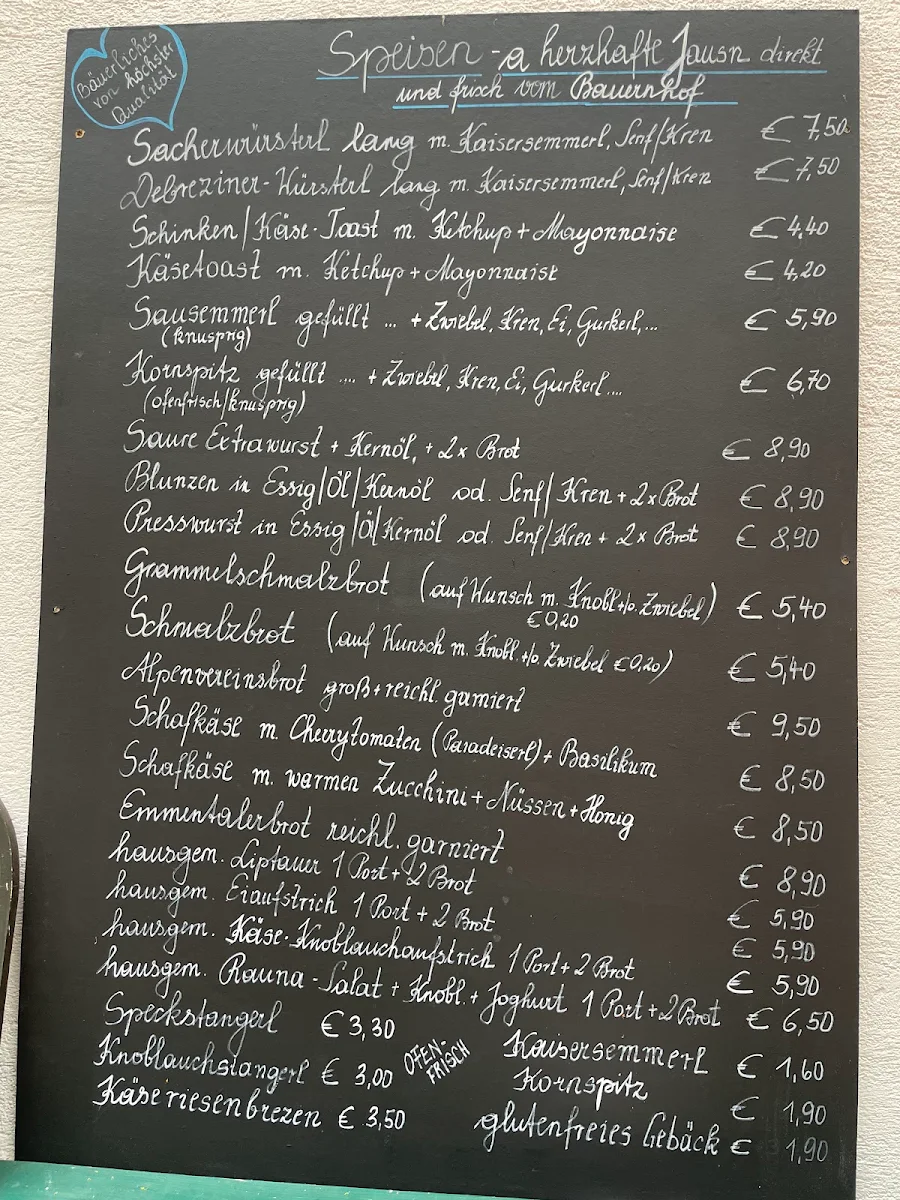 Bäuerliches
von höchster
Qualität
Speisen - a herzhafte Jausn direkt
und frisch vom Bauernhof
Sacherwürsterl lang m. Kaisersemmerl, Senf/Kren € 7,50
Debreziner-Würsterl lang m. Kaisersemmerl, Senf/Kren € 7,50
Schinken/Käse-Toast m. Ketchup + Mayonnaise € 4,40
Käsetoast m. Ketchup + Mayonnaise € 4,20
Sausemmerl gefüllt ... + Zwiebel, Kren, Ei, Gurkerl,... € 5,90
(knusprig)
Kornspitz gefüllt .... + Zwiebel, Kren, Ei, Gurkerl.... € 6,70
(ofenfrisch/knusprig)
Saure Extrawurst + Kernöl, + 2x Brot € 8,90
Blunzen in Essig/Öl/Kernöl od. Senf/Kren + 2x Brot € 8,90
Presswurst in Essig/Öl/Kernöl od. Senf/Kren + 2x Brot € 8,90
Grammelschmalzbrot (auf Wunsch m. Knobl. +/o. Zwiebel) € 5,40
€ 0,20
Schmalzbrot (auf Wunsch m. Knobl. +/o. Zwiebel € 0,20) € 5,40
Alpenvereinsbrot groß + reichl. garniert € 9,50
Schafkäse m. Cherrytomaten (Paradeiserl) + Basilikum € 8,50
Schafkäse m. warmen Zucchini + Nüssen + Honig € 8,50
Emmentalerbrot reichl. garniert € 8,90
hausgem. Liptauer 1 Port + 2 Brot € 5,90
hausgem. Eiaufstrich 1 Port + 2 Brot € 5,90
hausgem. Käse-Knoblauchaufstrich 1 Port + 2 Brot € 5,90
hausgem. Rauna-Salat + Knobl. + Joghurt 1 Port + 2 Brot € 6,50
Speckstangerl € 3,30
Knoblauchstangerl € 3,00
Käseriesenbrezen € 3,50
OFEN-
FRISCH
Kaisersemmerl € 1,60
Kornspitz € 1,90
glutenfreies Gebäck € 1,90